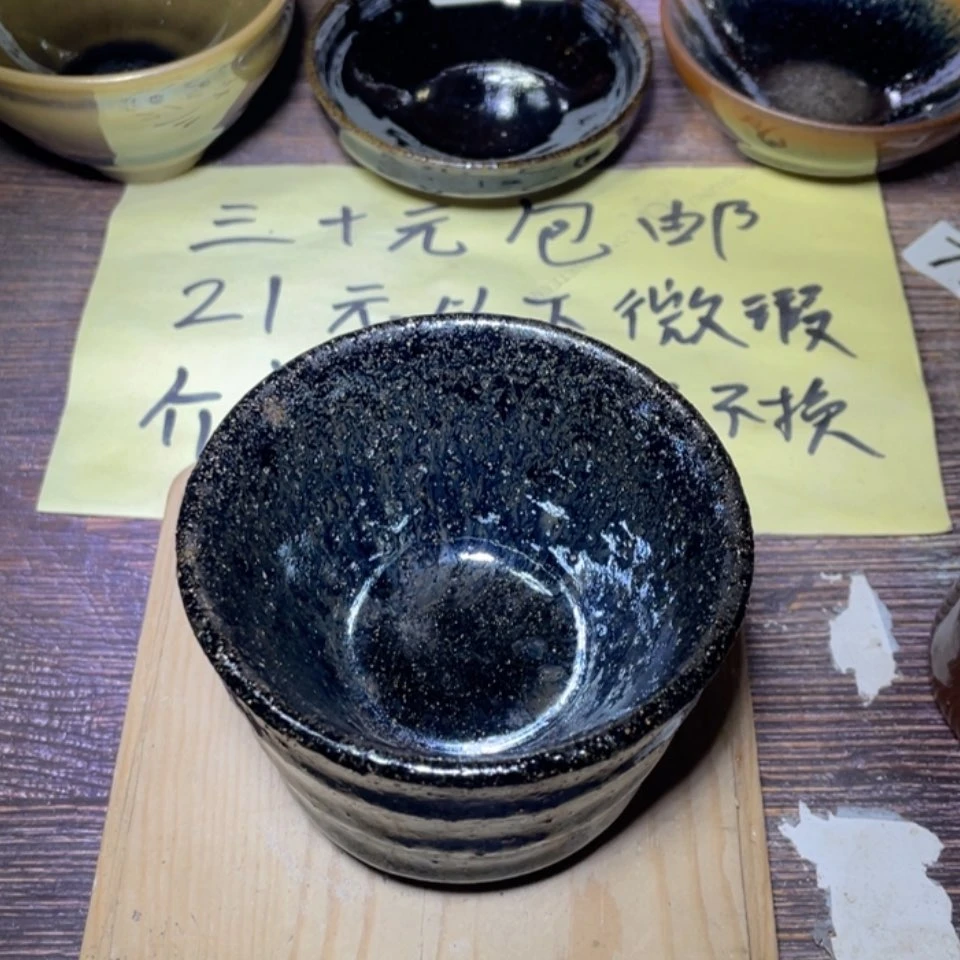 三十元包邮
21元以下微瑕
介 不换